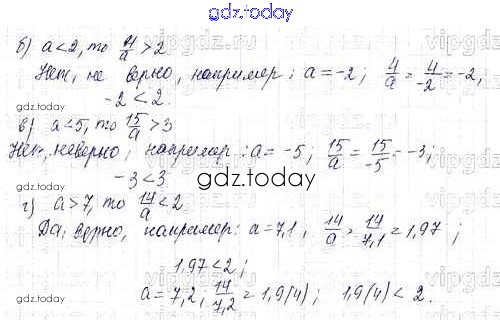 gdz.today
б) a<2, то 4/a >2
Нет, не верно, например: a=-2; 4/a = 4/-2 = -2,
-2<2.
gdz.today
в) a<5, то 15/a >3
Нет, неверно, например: a= -5; 15/a = 15/-5 = -3;
-3<3
gdz.today
г) a>7, то 14/a <2
Да, верно, например: a=7,1, 14/a = 14/7,1 = 1,97;
1,97<2;
gdz.today
a=7,2; 14/7,2 = 1,9(4); 1,9(4) < 2.
gdz.today